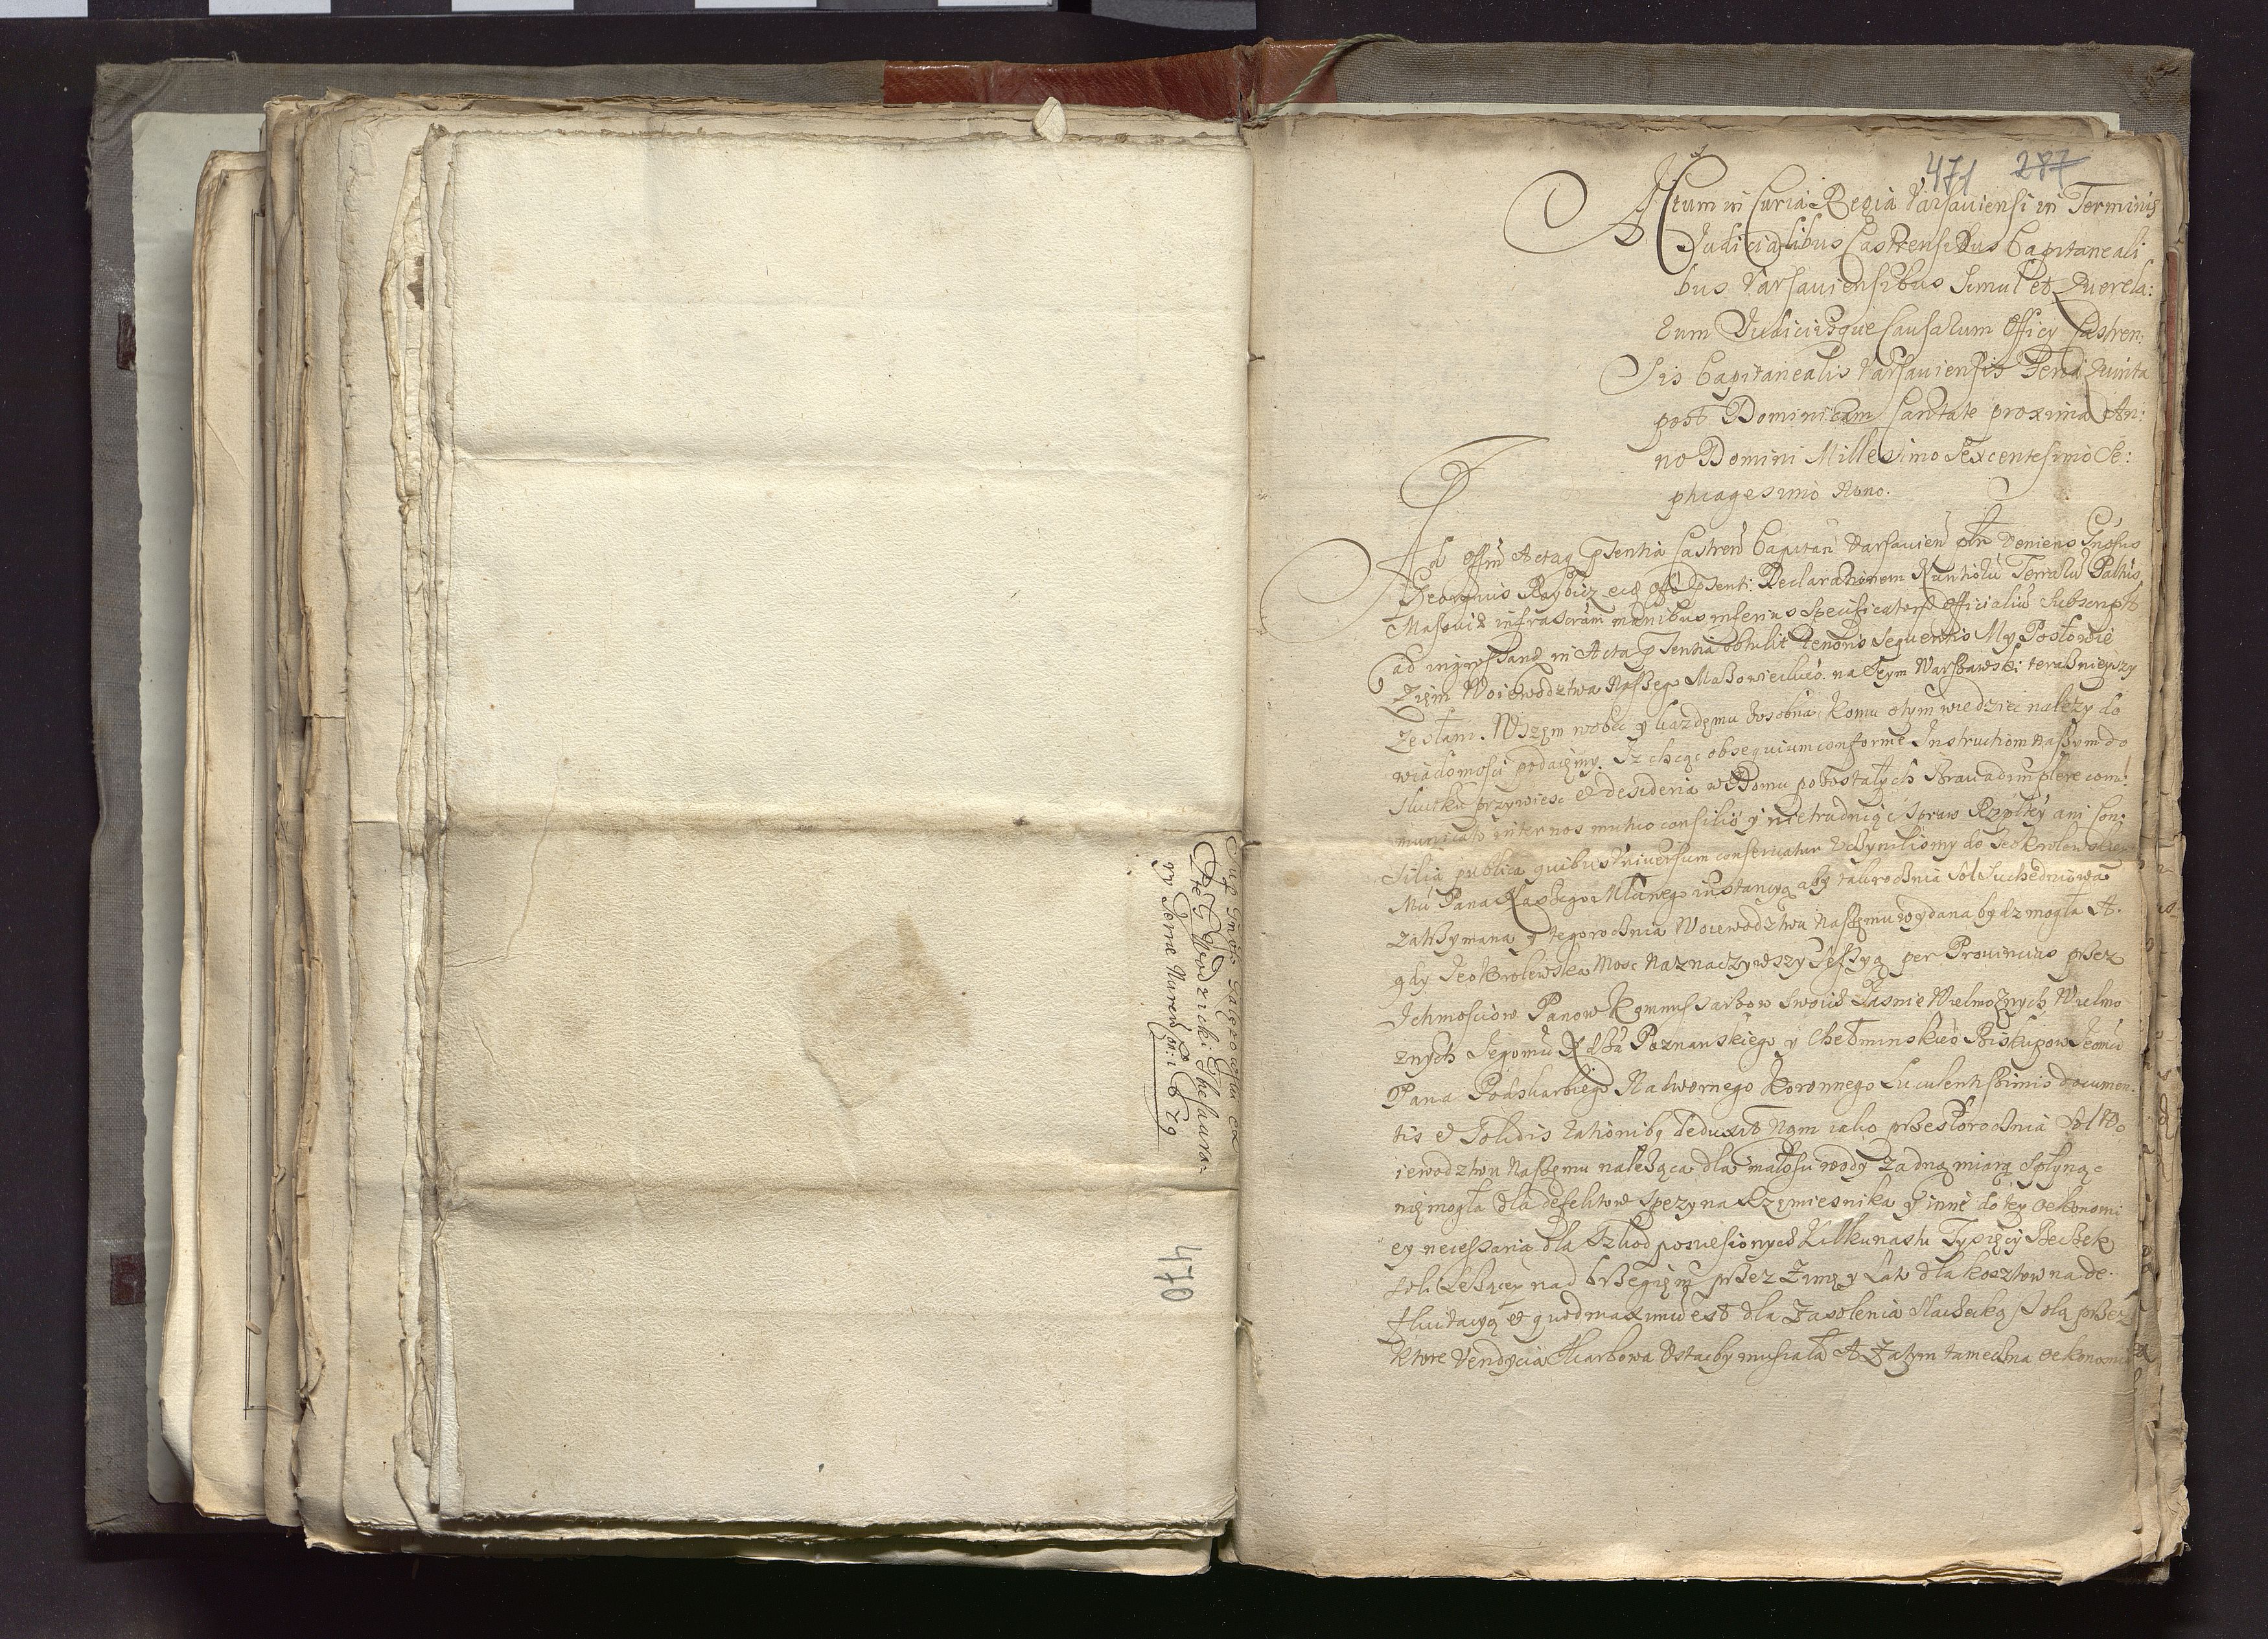 470
471 287
Actum in Curia Regia Varsaviensi in Terminis
Judicialibus Castrensibus Capitaneali
bus Varsaviensibus Simul et Querela:
rum Judiciisque Causarum Officy Castren:
sis Capitanealis Varsaviensis Feria Quinta
post Dominicam Cantate proxima An:
no Domini Millesimo Sexcentesimo Se:
ptuagesimo Nono.
Ad Offm Actaq pntia Castren Capitan Varsavien veniens Gnosus
Georgius eid offo pnti Declarationem Nuntioru Terraru Paltus
Masoviæ infrascriam manibus inferius Specificator Officialiu Subscript
ad ingrossand in Acta pntia obtulit tenoris sequentis My Posłowie
Zięm Woiewodztwa Naszego Mazowieckieo na Seym Warszawski teraznieyszy
Zesłani. Wszęm wobec y kazdęmu zosobna Komu otym wiedziec nalezy do
wiadomosci podaięmy. Iz chcąc obsequium conforme Instructiom Naszym do
skutku przywiesc et desideria w Domu pozostałych Braci adimplere com:
municato inter nos mutuo consilio y nietrudniąc Spraw Rzpltey ani Con:
silia publica quibus Universum conservatur Uczyniliomy do Jeo Krolewskiey
Mci Pana Naszego Młciwego instancyą aby takrocznia Sol Suchedniowa
zatrzymana y tegoroczna Woiewodztwu Naszęmu wydana bydz mogła A.
gdy Jeo Krolewska Mosc Naznaczywszy Sessyą per Provincias przez
Ichmosciow Panow Kommissarzow Swoich Jasnie Wielmoznych Wielmo
znych Jegomci Xdza Poznanskiego y Chełminskieo Biskupow Jeomci
Pana Podskarbiego Nadwornego Koronnego Luculentissimis documen:
tis et Solidis rationibq deduxit Nam iako przeszłoroczna Sol Wo
iewodztwu Naszęmu naleząca dla małosci wody zadną miarą Spłynąc
niemogła dla defektow Spezy na Rzęmiesnika y inne do tey oekonomi
ey necessaria dla Szkod poniesionych Kilkunastu Tysięcy Beczek
soli Lezącey nad brzegięm przez Zimę y Lato dla kosztow na de:
fluitacyą et quod maximu est dla Zasolenia Slachecką Solą przez
ktore Vendycia Skarbowa Ustacby musiała A Zatym tameczna oekonomia